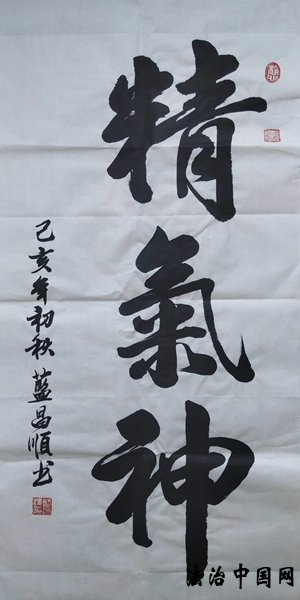 精氣神
己亥年初秋 藍昌順书
法治中国网